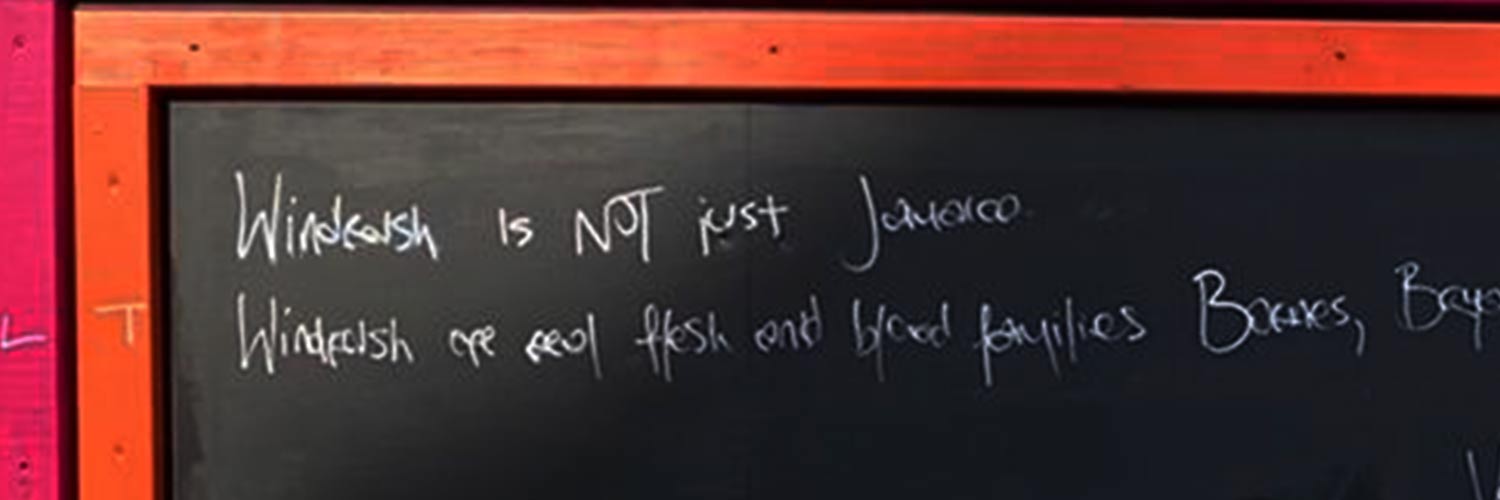 Windrush is NOT just Jamaica.
Windrush are real flesh and blood families Barnes,